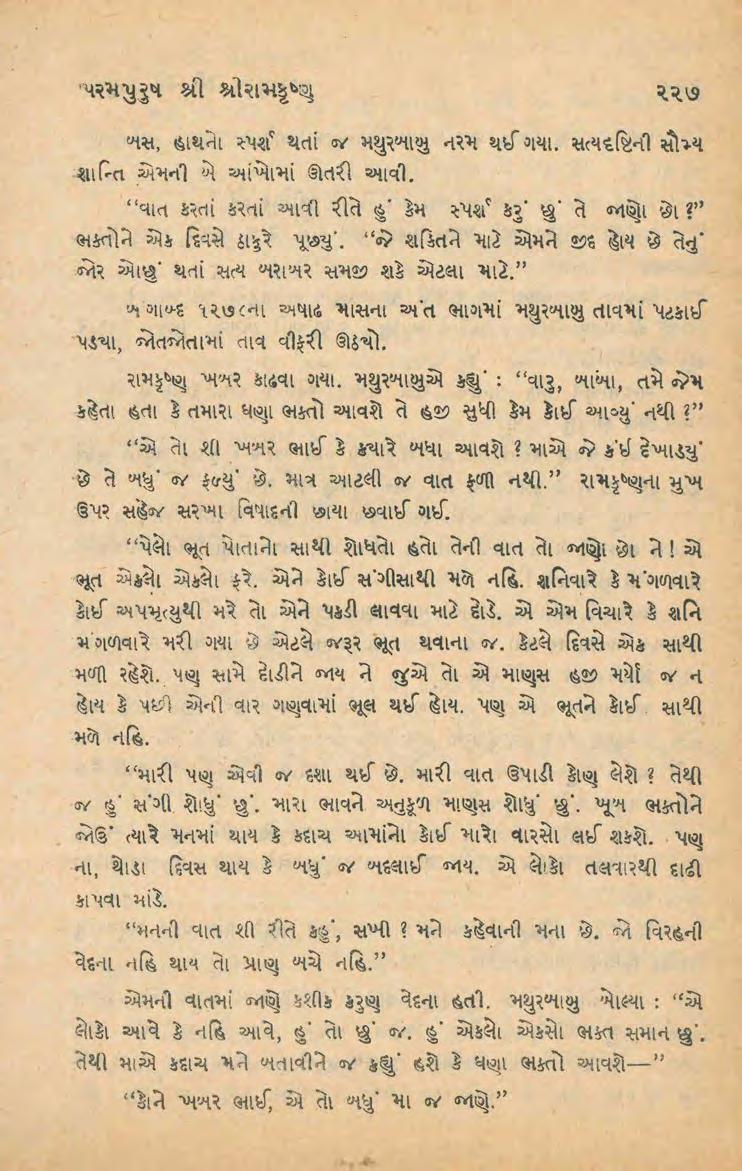 પરમપુરુષ શ્રી શ્રીરામકૃષ્ણ ૨૨૭
બસ, હાથનો સ્પર્શ થતાં જ મથુરબાબુ નરમ થઈ ગયા. સત્યદૃષ્ટિની સૌમ્ય
શાન્તિ એમની બે આંખોમાં ઊતરી આવી.
“વાત કરતાં કરતાં આવી રીતે હું કેમ સ્પર્શ કરું છું તે જાણો છો ?”
ભક્તોને એક દિવસે ઠાકુરે પૂછ્યું. “જે શક્તિને માટે એમને જીદ હોય છે તેનું
જોર ઓછું થતાં સત્ય બરાબર સમજી શકે એટલા માટે.”
બંગાબ્દ ૧૨૭૮ના અષાઢ માસના અંત ભાગમાં મથુરબાબુ તાવમાં પટકાઈ
પડ્યા, જોતજોતામાં તાવ વીફરી ઊઠ્યો.
રામકૃષ્ણ ખબર કાઢવા ગયા. મથુરબાબુએ કહ્યું : “વારુ, બાબા, તમે જેમ
કહેતા હતા કે તમારા ઘણા ભક્તો આવશે તે હજી સુધી કેમ કોઈ આવ્યું નથી ?”
“એ તો શી ખબર ભાઈ કે ક્યારે બધા આવશે ? માએ જે કંઈ દેખાડ્યું
છે તે બધું જ ફળ્યું છે. માત્ર આટલી જ વાત ફળી નથી.” રામકૃષ્ણના મુખ
ઉપર સહેજ સરખા વિષાદની છાયા છવાઈ ગઈ.
“પેલો ભૂત પોતાનો સાથી શોધતો હતો તેની વાત તો જાણો છો ને ! એ
ભૂત એકલો એકલો ફરે. એને કોઈ સંગીસાથી મળે નહિ. શનિવારે કે મંગળવારે
કોઈ અપમૃત્યુથી મરે તો એને પકડી લાવવા માટે દોડે. એ એમ વિચારે કે શનિ
મંગળવારે મરી ગયા છે એટલે જરૂર ભૂત થવાના જ. કેટલે દિવસે એક સાથી
મળી રહેશે. પણ સામે દોડીને જાય ને જુએ તો એ માણસ હજી મર્યો જ ન
હોય કે પછી એની વાર ગણવામાં ભૂલ થઈ હોય. પણ એ ભૂતને કોઈ સાથી
મળે નહિ.
“મારી પણ એવી જ દશા થઈ છે. મારી વાત ઉપાડી કોણ લેશે ? તેથી
જ હું સંગી શોધું છું. મારા ભાવને અનુકૂળ માણસ શોધું છું. ખૂબ ભક્તોને
જોઉં ત્યારે મનમાં થાય કે કદાચ આમાંનો કોઈ મારો વારસો લઈ શકશે. પણ
ના, થોડા દિવસ થાય કે બધું જ બદલાઈ જાય. એ લોકો તલવારથી દાઢી
કાપવા માંડે.
“મનની વાત શી રીતે કહું, સખી ? મને કહેવાની મના છે. જો વિરહની
વેદના નહિ થાય તો પ્રાણ બચે નહિ.”
એમની વાતમાં જાણે કશીક કરુણ વેદના હતી. મથુરબાબુ બોલ્યા : “એ
લોકો આવે કે નહિ આવે, હું તો છું જ. હું એકલો એકસો ભક્ત સમાન છું.
તેથી માએ કદાચ મને બતાવીને જ કહ્યું હશે કે ઘણા ભક્તો આવશે—”
“કોને ખબર ભાઈ, એ તો બધું મા જ જાણે.”